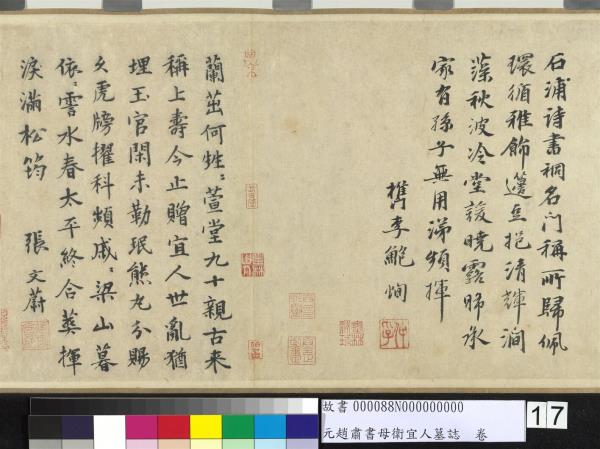 石浦诗書名门稱所歸佩
環循雅飾籩豆挹清輝澗
藻秋波冷堂萲曉露晞承
家有孫子無用涕頻揮
檇李鮑恂
蘭茁何牲〻萱堂九十親古来
稱上壽今止贈宜人世亂猶
埋玉官閑未勒珉熊丸分賜
久虎牓擢科頻戚〻梁山暮
依〻霅水春太平終合葬揮
淚滿松筠 張文蔚
故書 000088N000000000
元趙肅書母衛宜人墓誌 卷
17